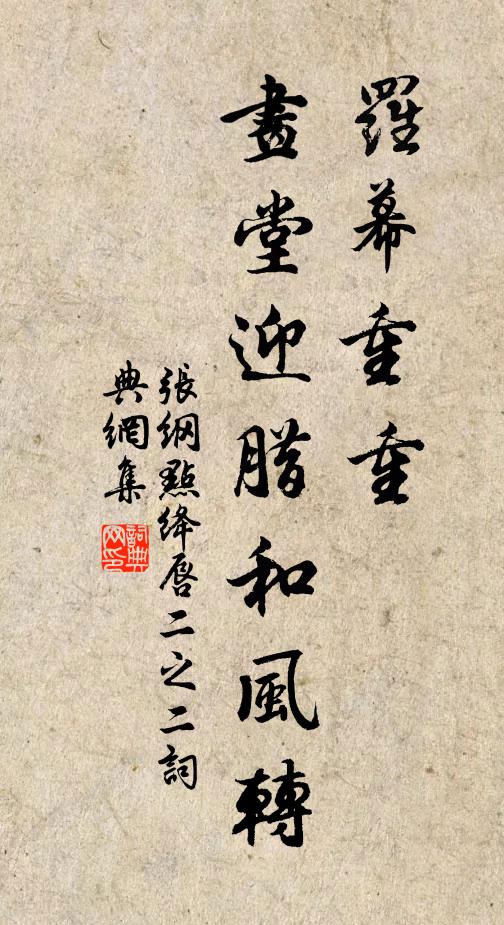 羅幕重重
畫堂迎腊和風轉
張綱點絳唇二之二詞
典網集
詞典
网印